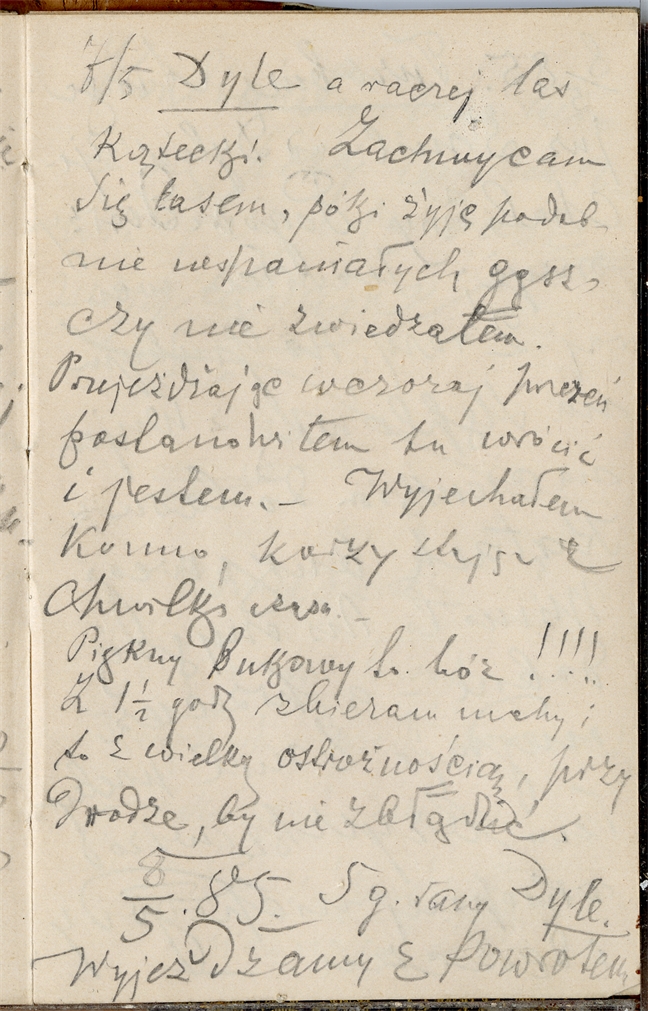 7/5 Dyle a raczej las
Kątecki. Zachwycam
się lasem, póki żyję podob-
nie wspaniałych gąsz-
czy nie zwiedzałem.
Przejeżdżając wczoraj przezeń
postanowiłem tu wrócić
i jestem. – Wyjechałem
Konno, korzystając z
Chwilki czasu. –
Piękny Bukowy to bór !!!!!
Z 1½ godz zbieram mchy i
to z wielką ostrożnością, przy
Drodze, by nie zbłądzić.
8/5. 85. 5 g. rano Dyle.
Wyjeżdżamy z Powrotem